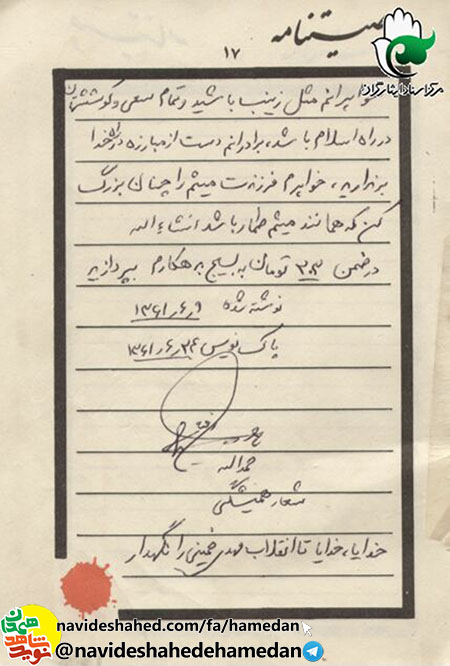 وصیتنامه
۱۷
مرکز اسناد ایثارگران
خواهرانم مثل زینب باشید و تمام سعی و کوشششان
در راه اسلام باشد، برادرانم دست از مبارزه در راه خدا
برندارید، خواهرم فرزندت میثم را چنان بزرگ
کن که همانند میثم طمار باشد انشاءالله
در ضمن ۳۰۳ تومان به بسیج بدهکارم بپردازید
نوشته شده ۱۳۶۱،۶،۹
پاک نویس ۱۳۶۱،۶،۲۴
حمدالله
شعار همیشگی
خدایا، خدایا تا انقلاب مهدی خمینی را نگهدار
navideshahed.com/fa/hamedan
@navideshahedehamedan
نوید شاهد
همدان